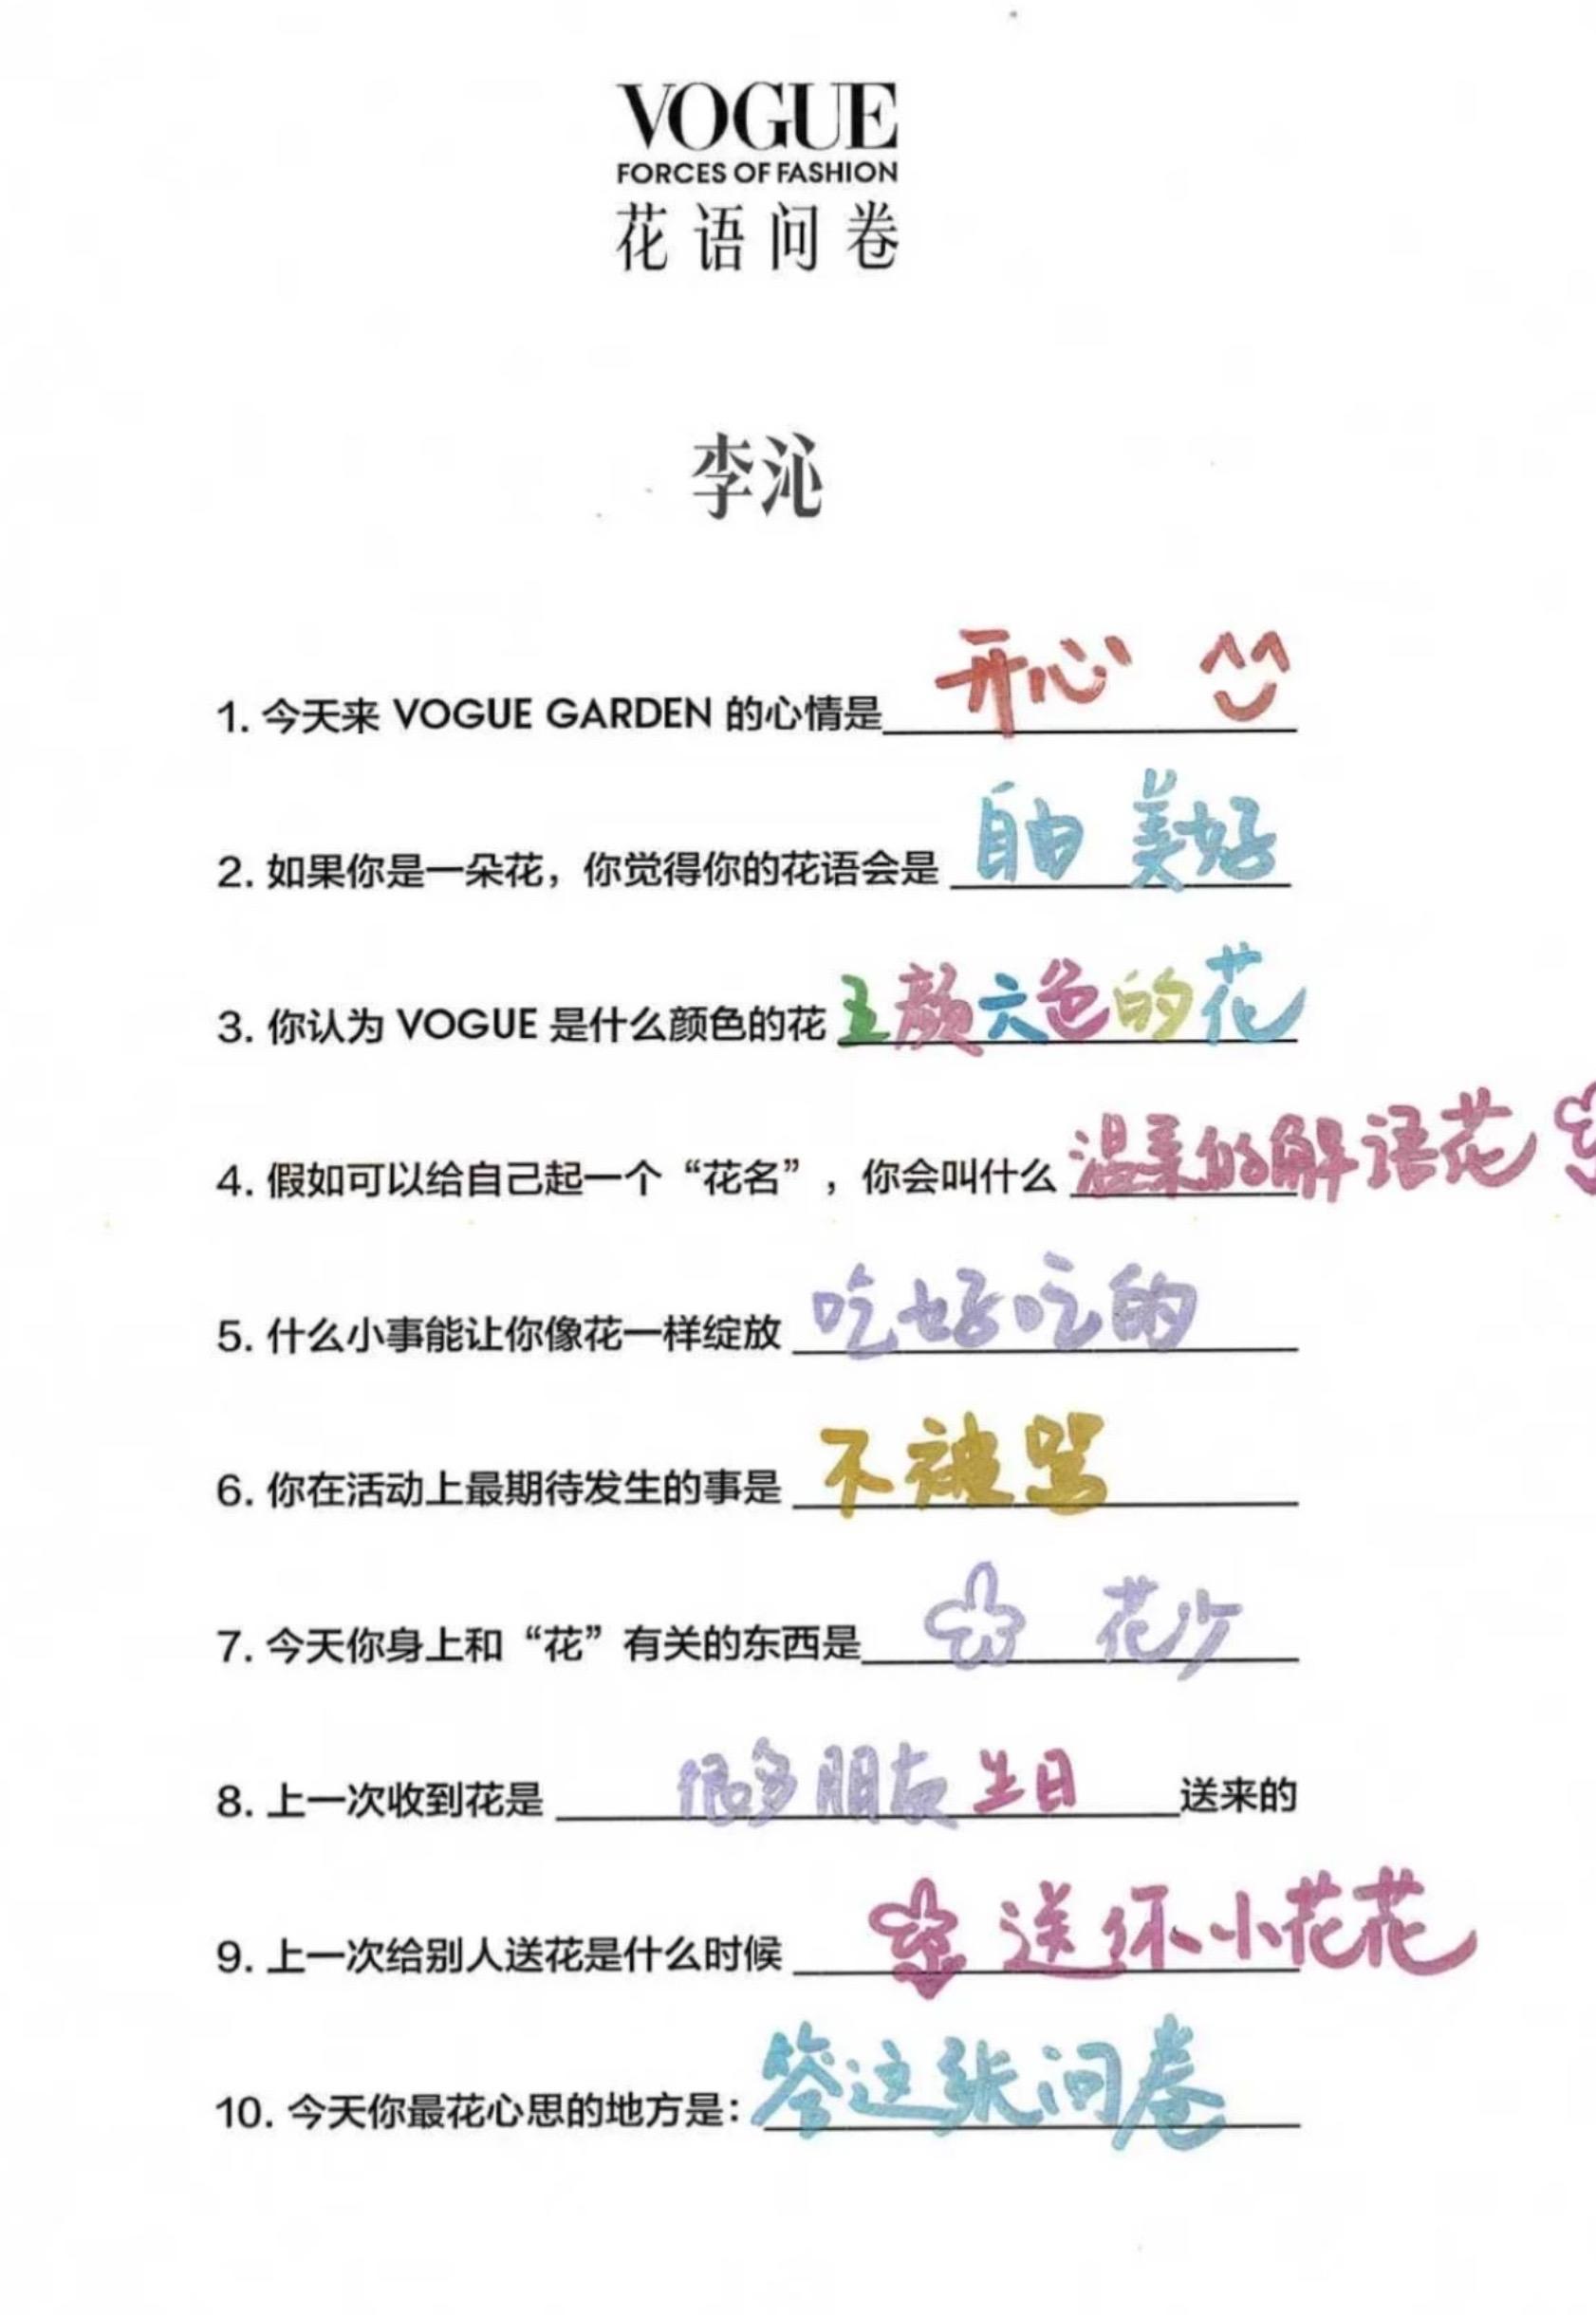 VOGUE
FORCES OF FASHION
花语问卷
李沁
1. 今天来 VOGUE GARDEN 的心情是 开心
2. 如果你是一朵花，你觉得你的花语会是 自由 美好
3. 你认为 VOGUE 是什么颜色的花 五颜六色的花
4. 假如可以给自己起一个“花名”，你会叫什么 温柔的解语花
5. 什么小事能让你像花一样绽放 吃好吃的
6. 你在活动上最期待发生的事是 不被骂
7. 今天你身上和“花”有关的东西是 花少
8. 上一次收到花是 很多朋友 生日 送来的
9. 上一次给别人送花是什么时候 送你小花花
10. 今天你最花心思的地方是：答这张问卷